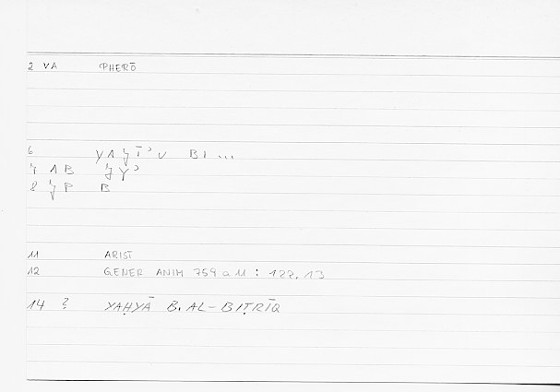 2 VA PHERŌ
6 YAǦĪʾU BI ...
7 AB ǦYʾ
8 ǦP B
11 ARIST
12 GENER ANIM 759 a 11 : 122,13
14 ? YAḤYĀ B. AL-BIṬRĪQ